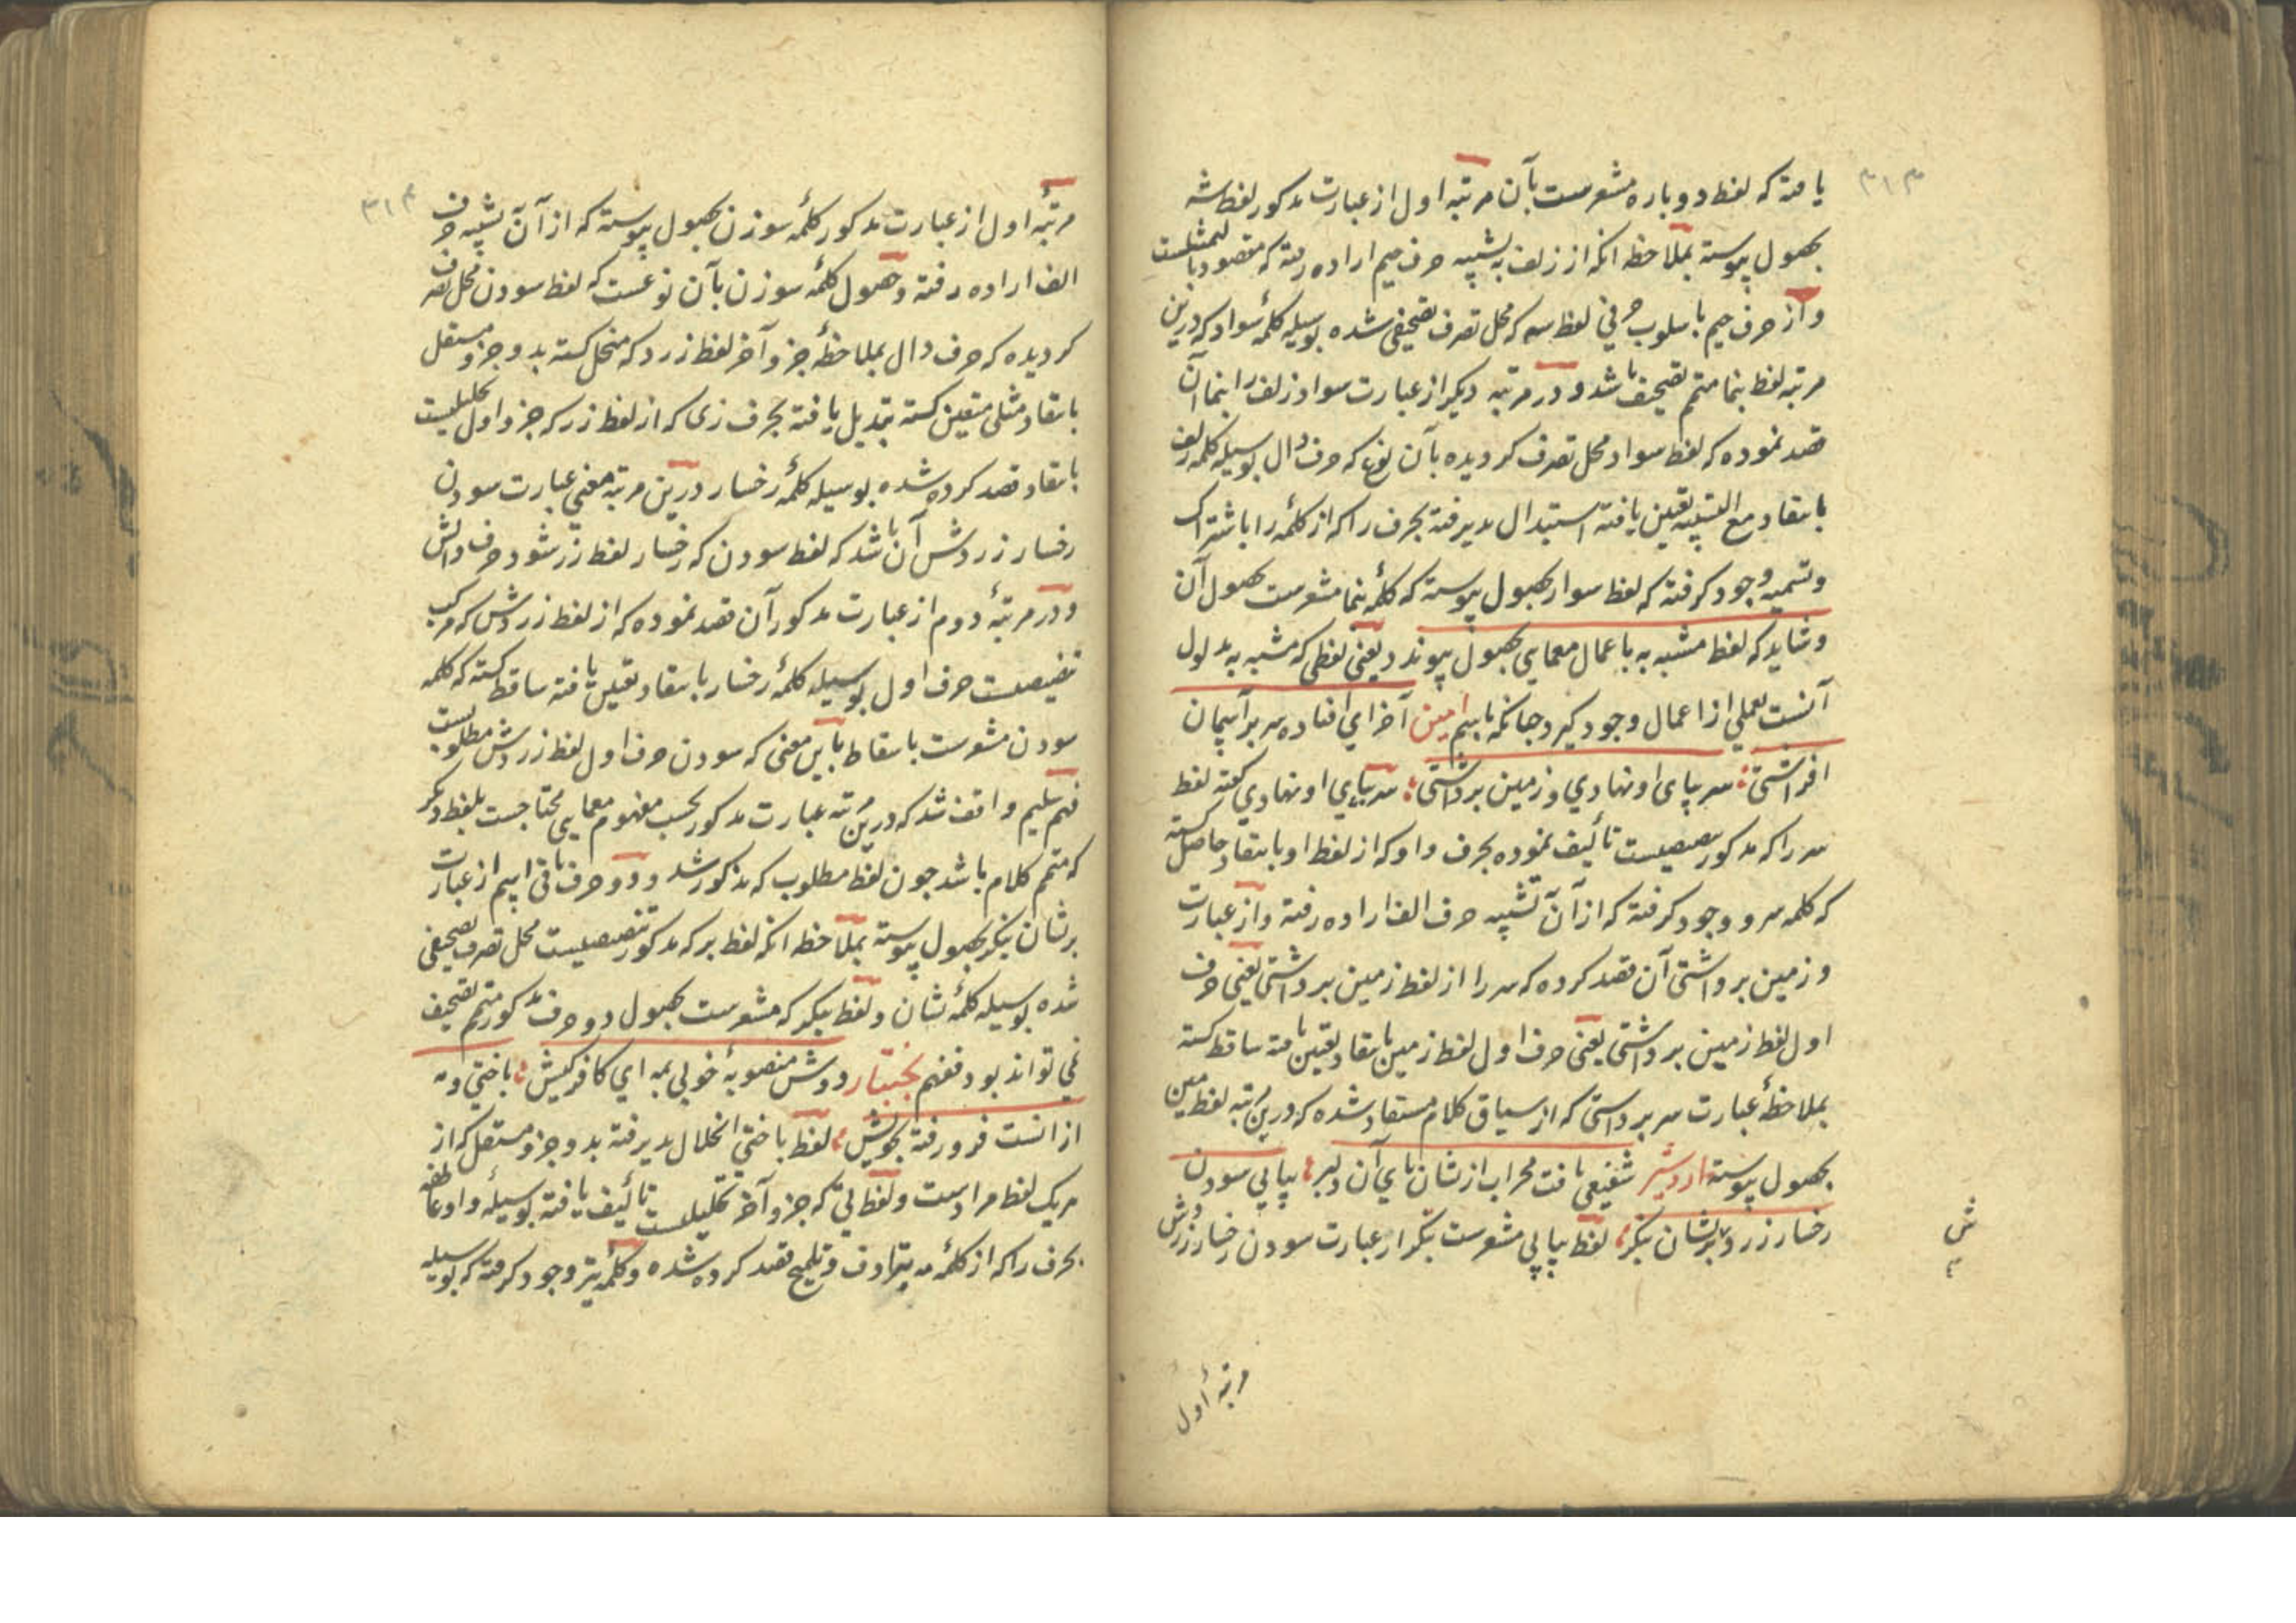 ۳۱۳
یافته که لفظ دوباره مشعرست بآن مرتبه اول از عبارت مذکور لفظ شه
بحصول پیوسته بملاحظه انکه از زلف به تشبیه حرف جیم اراده رفته که مقصود بالتمثیلست
واز حرف جیم باسلوب حرفی لفظ سه که محل تصرف تصحیفی شده بوسیله کلمهٔ سواد که درین
مرتبه لفظ بنما متمم تصحیف باشد و در مرتبه دیکر از عبارت سواد زلف را بنما آن
قصد نموده که لفظ سواد محل تصرف کردیده بآن نوع که حرف دال بوسیله کلمه زلف
بانتقاد مع التشبیه تعین یافته استبدال پذیرفته بحرف را که از کلمهٔ را باشتراک
وتسمیه وجود کرفته که لفظ سوار بحصول پیوسته که کلمهٔ بنما مشعرست بحصول آن
وشاید که لفظ مشبه به باعمال معمایی بحصول پیوندد یعنی لفظی که مشبه به مدلول
آنست بعملی از اعمال وجود کیرد چنانکه باسم امین آخر ای افتاده سر بر آسمان
افراشتی : سر بپای او نهادی و زمین برداشتی : سر بپای او نهادی کفته لفظ
سر را که مذکور تنصیصیست تألیف نموده بحرف واو که از لفظ او بانتقاد حاصل کشته
که کلمه سرو وجود کرفته که از آن تشبیه حرف الف اراده رفته واز عبارت
وزمین برداشتی آن قصد کرده که سر را از لفظ زمین برداشتی یعنی حرف
اول لفظ زمین برداشتی یعنی حرف اول لفظ زمین بانتقاد تعین یافته ساقط کشته
بملاحظهٔ عبارت سر برداشتی که از سیاق کلام مستفاد شده که درین مرتبه لفظ مین
بحصول پیوسته اردشیر شفیعی یافت محراب از نشان پای آن دلبر : پیاپی سودن
رخسار زردش بر نشان بنکر : لفظ پیاپی مشعرست بتکرار عبارت سودن رخسار زردش
مرتبهٔ اول
۳۱۴
مرتبهٔ اول از عبارت مذکور کلمهٔ سوزن بحصول پیوسته که از آن تشبیه حرف
الف اراده رفته وحصول کلمهٔ سوزن بآن نوعست که لفظ سودن محل تصرف
کردیده که حرف دال بملاحظهٔ جزو آخر لفظ زرد که منحل کشته بدو جزو مستقل
بانتقاد مثلی متعین کشته تبدیل یافته بحرف زی که از لفظ زر که جزو اول تحلیلیست
بانتقاد قصد کرده شده بوسیله کلمهٔ رخسار درین مرتبه معنی عبارت سودن
رخسار زردش آن باشد که لفظ سودن که رخسار لفظ زر شود حرف دالش
ودر مرتبهٔ دوم از عبارت مذکور آن قصد نموده که از لفظ زردش که مرکب
تنصیصیست حرف اول بوسیله کلمهٔ رخسار بانتقاد تعین یافته ساقط کشته که کلمه
سودن مشعرست باسقاط باین معنی که سودن حرف اول لفظ زردش مطلوبست
فهم سلیم واقف شد که درین مرتبه عبارت مذکور بحسب مفهوم معمایی محتاجست بلفظ دیکر
که متمم کلام باشد چون لفظ مطلوب که مذکور شد ودو حرف باقی اسم از عبارت
بر نشان بنکر بحصول پیوسته بملاحظه انکه لفظ بر که مذکور تنصیصیست محل تصرف تصحیفی
شده بوسیله کلمهٔ نشان ولفظ بنکر که مشعرست بحصول دو حرف مذکور متمم تصحیف
نمی تواند بود فافهم بختیار دوش منصوبهٔ خوبی بمه ای کافرکیش : باختی ومه
ازانست فرو رفته بخویش : لفظ باختی انحلال پذیرفته بدو جزو مستقل که از
هریک لفظ مرادست ولفظ تی که جزو آخر تحلیلیست تألیف یافته بوسیلهٔ واو عاطفه
بحرف را که از کلمهٔ مه بترادف وتلمیح قصد کرده شده وکلمهٔ تیر وجود کرفته که بوسیله